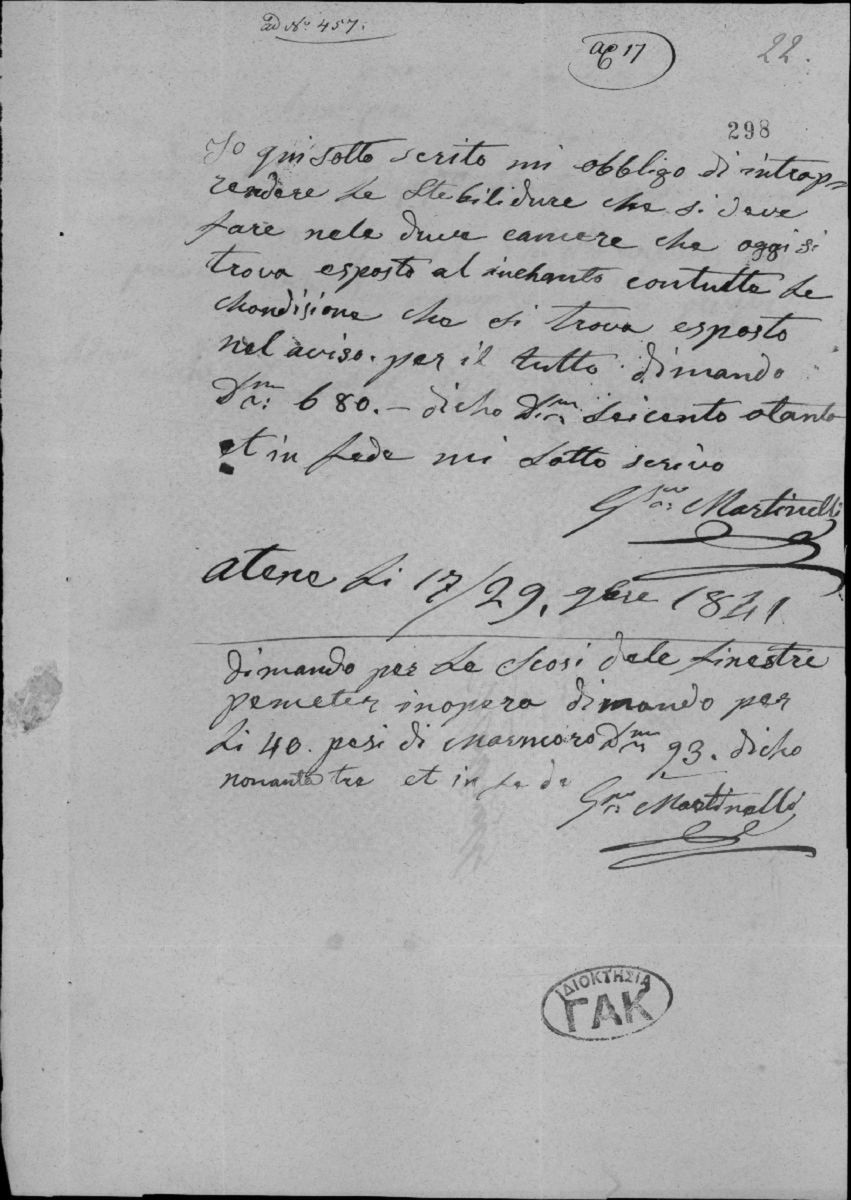 ad No 457.
αρ 17
22.
298
Io qui sotto scrito mi obbligo di intrap=
rendere Le Stebilidure che si deve
fare nele duve camere che oggi si
trova esposto al inchanto contutte Le
chondisione che si trova esposto
nel aviso. per il tutto dimando
Drm 680. – dicho Drm Seicento otanta
et in fede mi Sotto scrivo
Martinelli
Atene Li 17/29. 9bre 1841
dimando per Le Scosi dele finestre
inopera dimando per
Li 40. pesi di Marmoro Drm 93. dicho
nonanta tre et in fe de
Martinelli
ΙΔΙΟΚΤΗΣΙΑ
ΓΑΚ